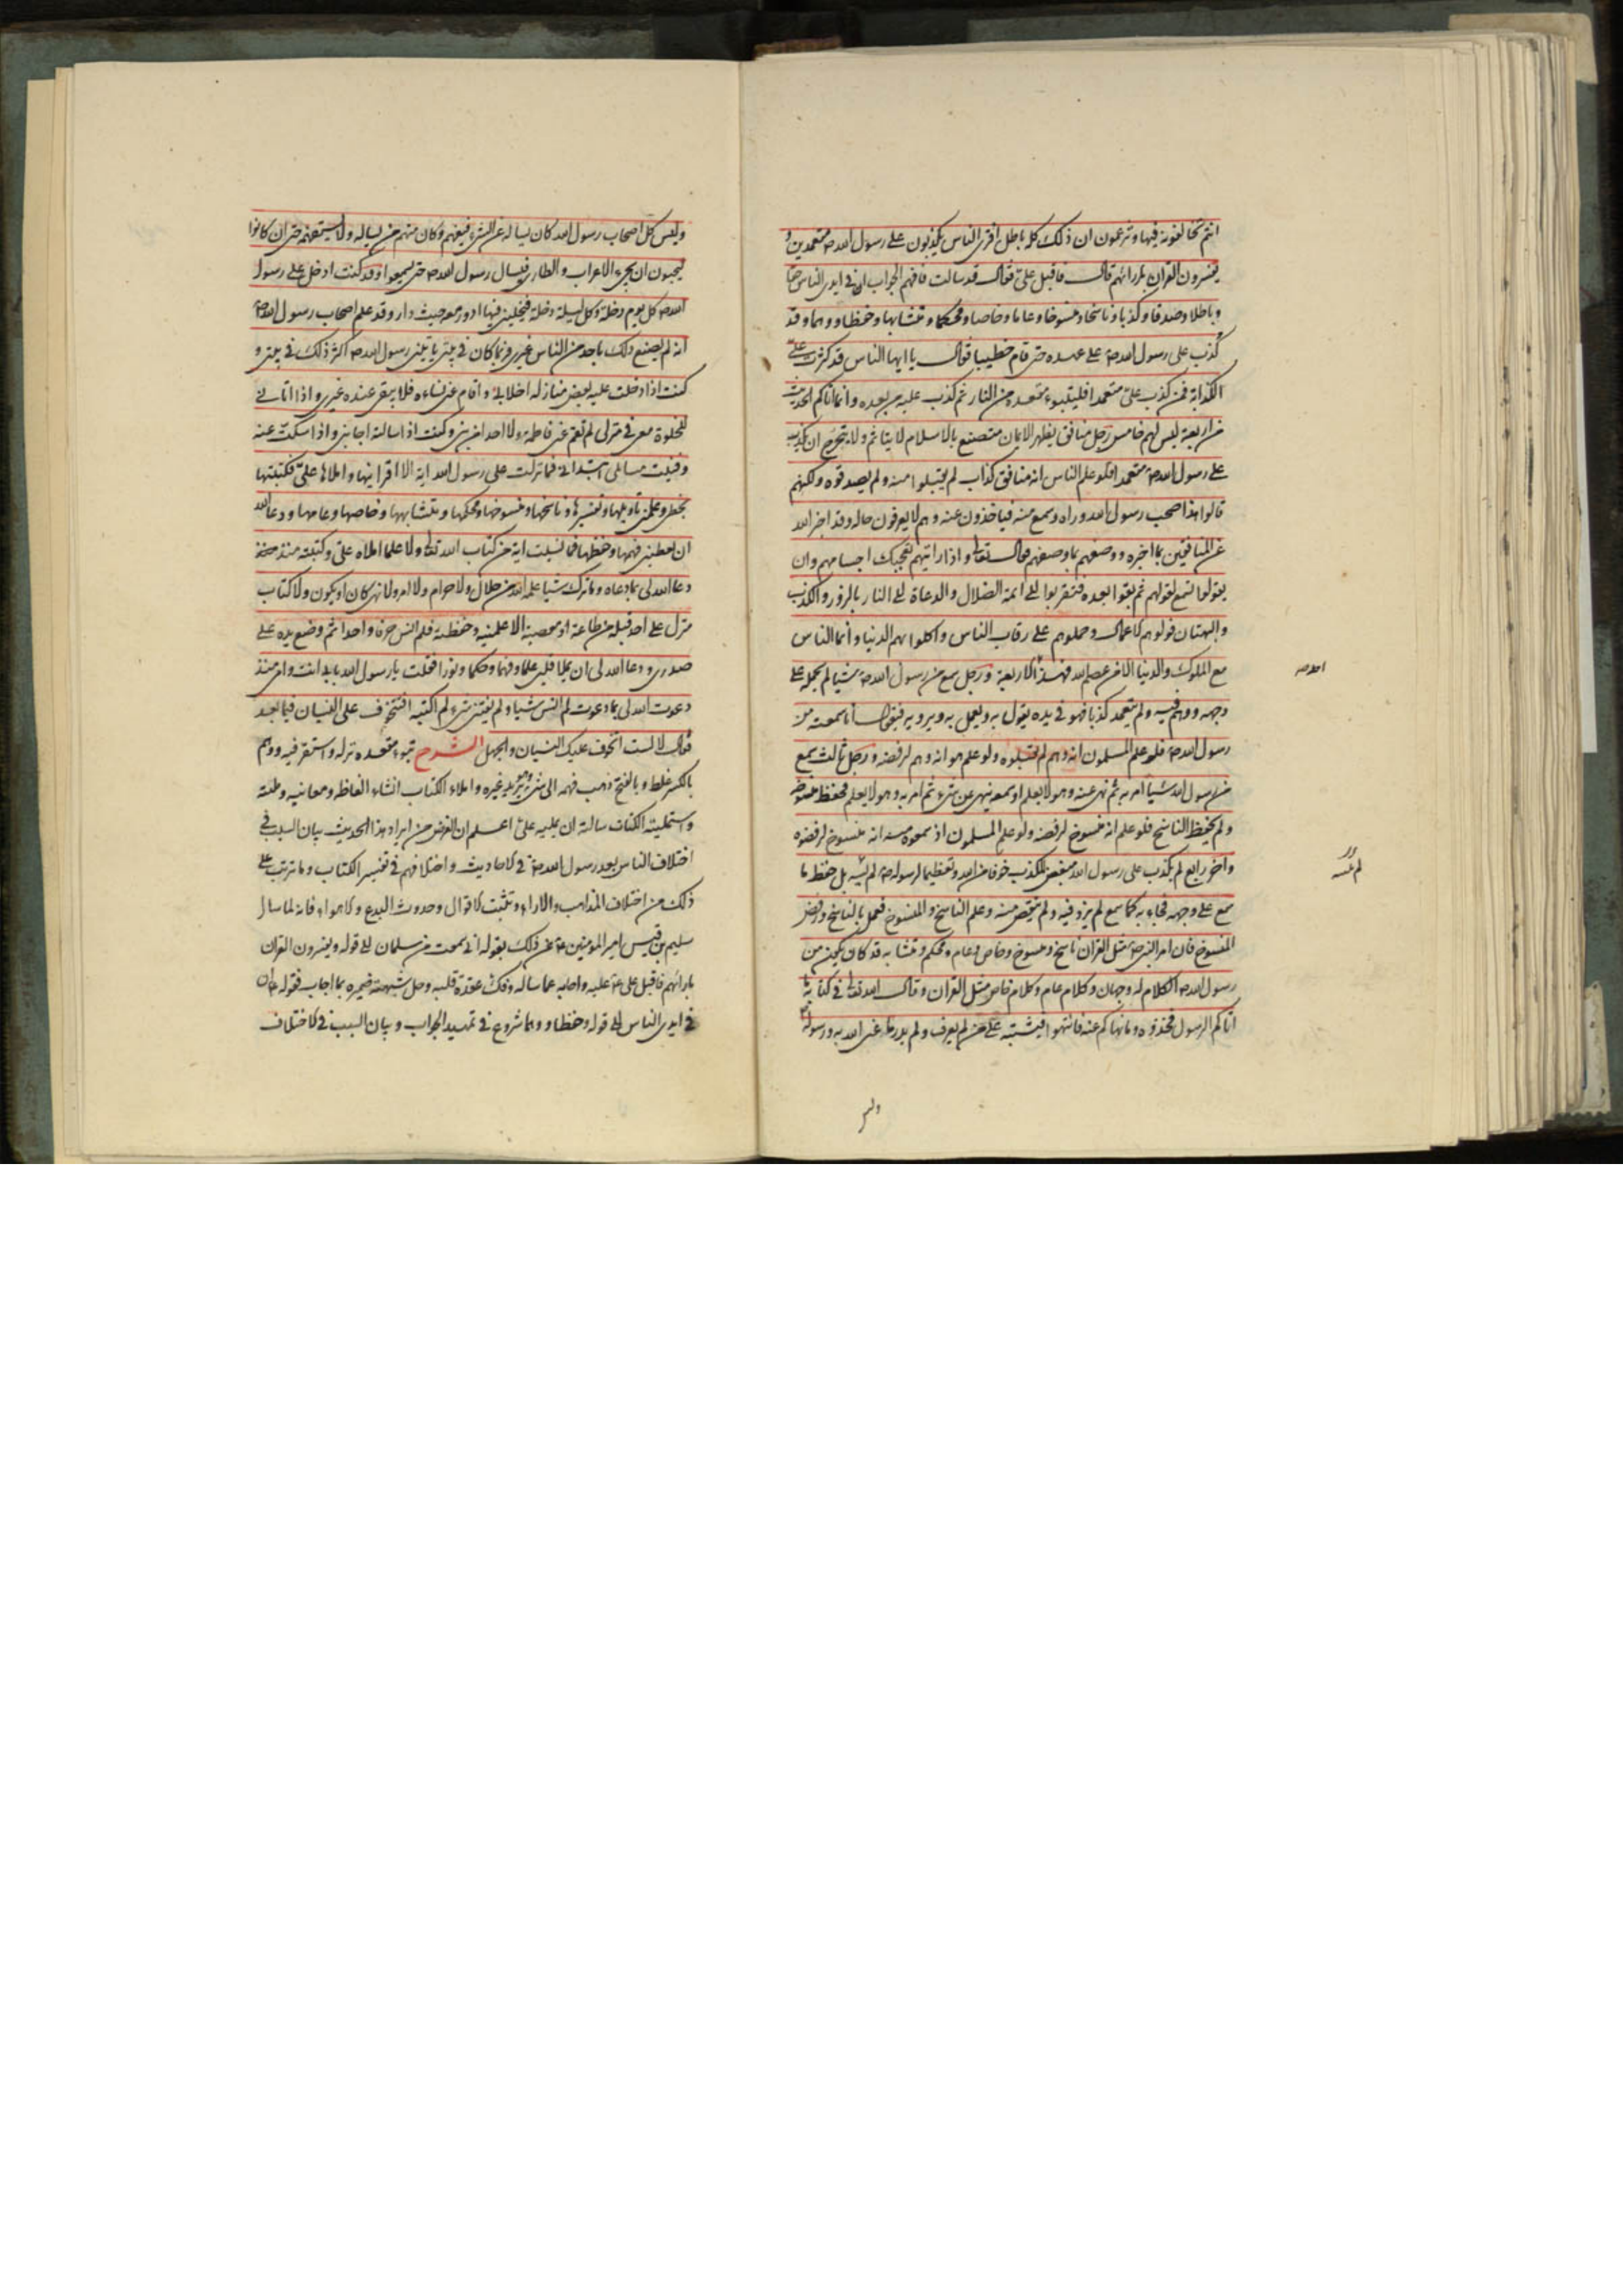 انتم تخالفونه فيها وتزعمون ان ذلك كله باطل افترى الناس يكذبون على رسول الله ص متعمدين و
يفسرون القران بارائهم قال فاقبل علىّ فقال قد سالت فافهم الجواب ان فى ايدى الناس حقا
وباطلا وصدقا وكذبا وناسخا ومنسوخا وعاما وخاصا ومحكما ومتشابها وحفظا ووهما وقد
كذب على رسول الله ص على عهده حتى قام خطيبا فقال يا ايها الناس قد كثرت علىّ
الكذابة فمن كذب علىّ متعمدا فليتبوء مقعده من النار ثم كذب عليه من بعده وانما اتاكم الحديث
من اربعة ليس لهم خامس رجل منافق يظهر الايمان متصنع بالاسلام لا يتاثم ولا يتحرج ان يكذب
على رسول الله ص متعمدا فلو علم الناس انه منافق كذاب لم يقبلوا منه ولم يصدقوه ولكنهم
قالوا هذا صحب رسول الله وراه وسمع منه فياخذون عنه وهم لا يعرفون حاله وقد اخبر الله
عن المنافقين بما اخبره ووصفهم بما وصفهم فقال تعالى واذا رايتهم تعجبك اجسامهم وان
يقولوا تسمع لقولهم ثم بقوا بعده فتقربوا الى ائمة الضلال والدعاة الى النار بالزور والكذب
والبهتان فولوهم الاعمال وحملوهم على رقاب الناس واكلوا بهم الدنيا وانما الناس
مع الملوك والدنيا الا من عصم الله فهذا الاربعة ورجل سمع من رسول الله ص شيئا لم يحمله على
احد
وجهه ووهم فيه ولم يتعمد كذبا فهو فى يده يقول به ويعمل به ويرويه فيقول انا سمعت من
رسول الله ص فلو علم المسلمون انه وهم لم يقبلوه ولو علم هو انه وهم لرفضه ورجل ثالث سمع
من رسول الله شيئا امر به ثم نهى عنه وهو لا يعلم او سمعه ينهى عن شىء ثم امر به وهو لا يعلم فحفظ منسوخه
ولم يحفظ الناسخ فلو علم انه منسوخ لرفضه ولو علم المسلمون اذ سمعوه منه انه منسوخ لرفضوه
واخر رابع لم يكذب على رسول الله مبغض للكذب خوفا من الله وتعظيما لرسوله ص لم ينسه بل حفظ ما
لم ينسه
سمع على وجهه فجاء به كما سمع لم يزد فيه ولم ينقص منه وعلم الناسخ والمنسوخ فعمل بالناسخ ورفض
المنسوخ فان امر النبى ص مثل القران ناسخ ومنسوخ وخاص وعام ومحكم ومتشابه قد كان يكون من
رسول الله ص الكلام له وجهان وكلام عام وكلام خاص مثل القران وقال الله تعالى فى كتابه ما
اتاكم الرسول فخذوه وما نهاكم عنه فانتهوا فيشتبه على من لم يعرف ولم يدر ما عنى الله به ورسوله
وليس
وليس كل اصحاب رسول الله كان يساله عن الشىء فيفهم وكان منهم من يساله ولا يستفهمه حتى ان كانوا
ليحبون ان يجىء الاعراب والطارى فيسال رسول الله ص حتى يسمعوا وقد كنت ادخل على رسول
الله ص كل يوم دخلة وكل ليلة دخلة فيخلينى فيها ادور معه حيث دار وقد علم اصحاب رسول الله ص
انه لم يصنع ذلك باحد من الناس غيرى فربما كان فى بيتى ياتينى رسول الله ص اكثر ذلك فى بيتى و
كنت اذا دخلت عليه بعض منازله اخلانى واقام عنى نساءه فلا يبقى عنده غيرى واذا اتانى
للخلوة معى فى منزلى لم تقم عنى فاطمة ولا احد من بنى وكنت اذا سالته اجابنى واذا سكتّ عنه
وفنيت مسائلى ابتدانى فما نزلت على رسول الله اية الا اقرانيها واملاها علىّ فكتبتها
بخطى وعلمنى تاويلها وتفسيرها وناسخها ومنسوخها ومحكمها ومتشابهها وخاصها وعامها ودعا الله
ان يعطينى فهمها وحفظها فما نسيت اية من كتاب الله تعالى ولا علما املاه علىّ وكتبته منذ
دعا الله لى بما دعاه وما ترك شيئا علمه الله من حلال ولا حرام ولا امر ولا نهى كان او يكون ولا كتاب
منزل على احد قبله من طاعة او معصية الا علمنيه وحفظته فلم انس حرفا واحدا ثم وضع يده على
صدرى ودعا الله لى ان يملا قلبى علما وفهما وحكما ونورا فقلت يا رسول الله بابى انت وامى منذ
دعوت الله لى بما دعوت لم انس شيئا ولم يفتنى شىء لم اكتبه افتتخوف على النسيان فيما بعد
فقال لا لست اتخوف عليك النسيان والجهل الشرح تبوء مقعده نزله واستقر فيه ووهم
بالكسر غلط وبالفتح ذهب فهمه الى شىء وهو يريد غيره واملاء الكتاب انشاء الفاظه ومعانيه
واستمليته الكتاب سالته ان يمليه علىّ اعلم ان الغرض من ايراد هذا الحديث بيان السبب فى
اختلاف الناس بعد رسول الله ص فى الاحاديث واختلافهم فى تفسير الكتاب وما ترتب على
ذلك من اختلاف المذاهب والاراء وتشتت الاقوال وحدوث البدع والاهواء فانه لما سال
سليم بن قيس امير المؤمنين ع عن ذلك بقوله انى سمعت من سلمان الى قوله ويفسرون القران
بارائهم فاقبل على ع عليه واجابه عما ساله وفك عقدة قلبه وحل شبهة ضميره بما اجاب فقوله ان
فى ايدى الناس الى قوله وحفظا ووهما شروع فى تمهيد الجواب وبيان السبب فى الاختلاف